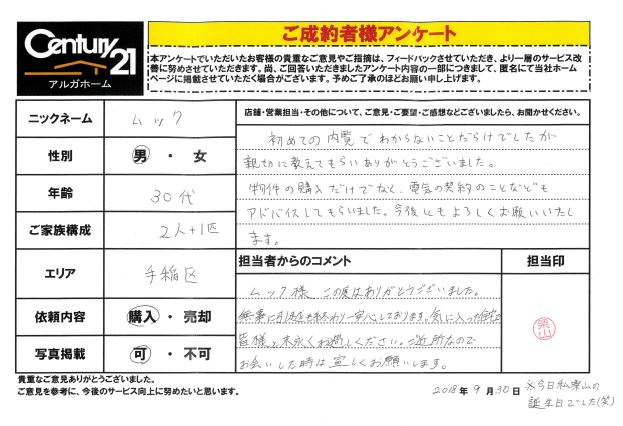 Century 21
アルガホーム
ご成約者様アンケート
本アンケートでいただいたお客様の貴重なご意見やご指摘は、フィードバックさせていただき、より一層のサービス改
善に努めさせていただきます。尚、ご回答いただきましたアンケート内容の一部につきまして、匿名にて当社ホーム
ページに掲載させていただく場合がございます。予めご了承のほどお願い申し上げます。
ニックネーム
ムック
性別
男 ・ 女
年齢
30代
ご家族構成
2人+1匹
エリア
手稲区
依頼内容
購入 ・ 売却
写真掲載
可 ・ 不可
店舗・営業担当・その他について、ご意見・ご要望・ご感想などございましたら、お聞かせください。
初めての内覧でわからないことだらけでしたが
親切に教えてもらいありがとうございました。
物件の購入だけでなく、電気の契約のことなども
アドバイスしてもらいました。今後ともよろしくお願いいたし
ます。
担当者からのコメント
担当印
ムック様 この度はありがとうございました。
無事に引越も終わり一安心しております。気に入った
皆様と末永くお過しください。ご近所なので
お会いした時は宜しくお願いします。
栗山
貴重なご意見ありがとうございました。
ご意見を参考に、今後のサービス向上に努めたいと思います。
2018年 9月30日
※今日私栗山の
誕生日でした(笑)